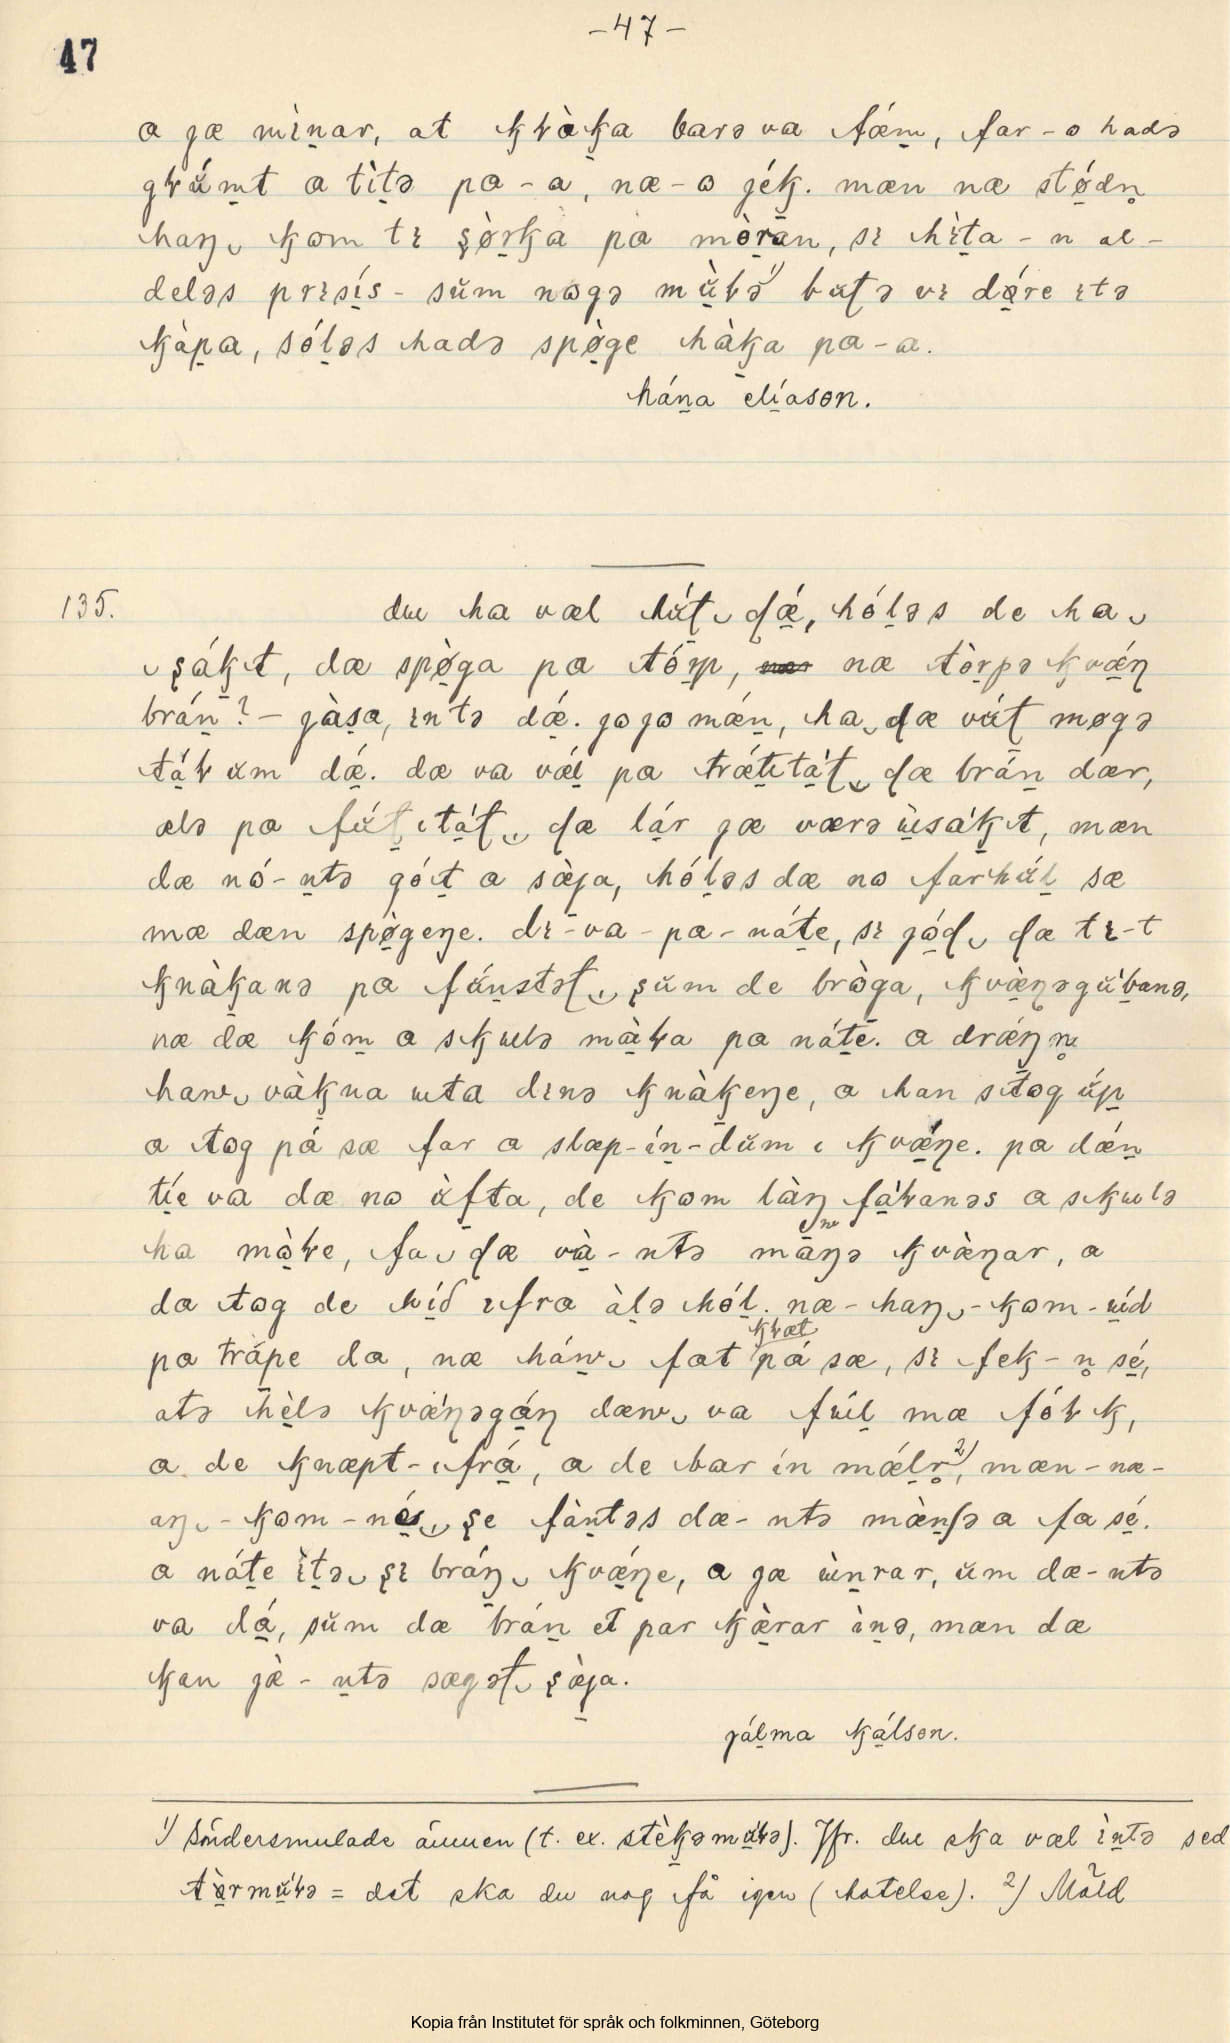 47
–47–
a jæ mìn̠ar, at kràk̠a barə va fǽm̠, far-o hadə
grǘm̠t a tìt̠ə pa-a, næ-o jék̠. mæn næ stǿdn̥
haŋ‿ kom tɪ s̨ø̀r̠ka pa mòr̠an, sɪ hɪ̀t̠a-n al-
deləs prɪsí̠s-sŭm nogə mù̠rə¹⁾ butə vɪ dǿ̠re ɪtə
kàp̠a, sól̠əs hadə spø̠̀ge hàk̠a pa-a.
hán̠a elí̠ason.
135. dɯ ha væl hú̠t‿ dǽ̠, hól̠əs de ha‿
‿s̨ák̠t, dæ spø̠̀ga pa tór̠p, næ tòr̠pə kvǽ̠ŋ
brán̠? – jàs̠a, ɪntə dǽ̠. jojo mǽn̠, ha‿ dæ vút̠ møgə
tá̠r um dǽ̠. dæ va vǽl̠ pa trǽt̠ɪtá̠t‿ dæ brán̠ dær,
ælə pa fút̠ɪtá̠t‿ dæ lá̠r jæ værə ɯ̠̀sák̠t, mæn
dæ nó-n̠tə gót̠ a sæ̠̀ja, hól̠əs dæ no farhúl̠ sæ
mæ dæn spø̠̀geŋe. dɪ-va-pa-nát̠e, sɪ jó̠d‿ dæ tɪ-t
knàk̠anə pa fǘn̠stət‿ s̨ŭm de brò̠ga, kvæ̠̀ŋəgǘb̠anə,
næ dæ kóm̠ a skɯlə mà̠ra pa nát̠e. a drǽŋ̠n̥
haw‿ vàk̠na ɯta dɪnə knàk̠eŋe, a han stog ǘp̠
a tog pá̠ sæ far a slæp-ín̠-dŭm ɪ kvǽ̠ŋe. pa dǽn̠
tí̠e va dæ no ùf̠ta, de kom làŋ̠ fà̠ranəs a skɯlə
ha mò̠re, fa‿ dæ và̠-ntə màŋ̠ə kvæ̠̀ŋar, a
da tog de híd̠ ɪfra àl̠ə hól̠. næ-haŋ‿-kom-ɯ̠́d
pa tráp̠e da, næ háw̠‿ fat krat pá̠ sæ, sɪ fek-n̥ sé̠,
atə hèl̠ə kvǽ̠ŋəgá̠ŋ dæw‿ va fɯ́l̠ mæ fó̠rk,
a de knæpt-ɪfrá̠, a de bar ín mǽl̠r̥²⁾, mæn-næ-
aŋ‿-kom-né̠s‿ s̨e fàn̠təs dæ-ntə mæ̀n̠ʃə a fa sé̠.
a nát̠e ɪ̀t̠ə‿ s̨ɪ bráŋ̠‿ kvǽ̠ŋe, a jæ ɯ̀n̠rar, ŭm dæ-ntə
va dá̠, sŭm dæ brán̠ et par kæ̠̀rar ɪ̀n̠ə, mæn dæ
kan jæ̀-n̠tə sægət‿ s̨æ̠̀ja.
jál̠ma ká̠lson.
1) Söndersmulade ämnen (t. ex. stèk̠əmú̠rə). Jfr. du ska væl ɪ̀n̠tə sed
tæ̠̀rmú̠rə = det ska du nog få igen (hotelse). 2) Mäld
Kopia från Institutet för språk och folkminnen, Göteborg